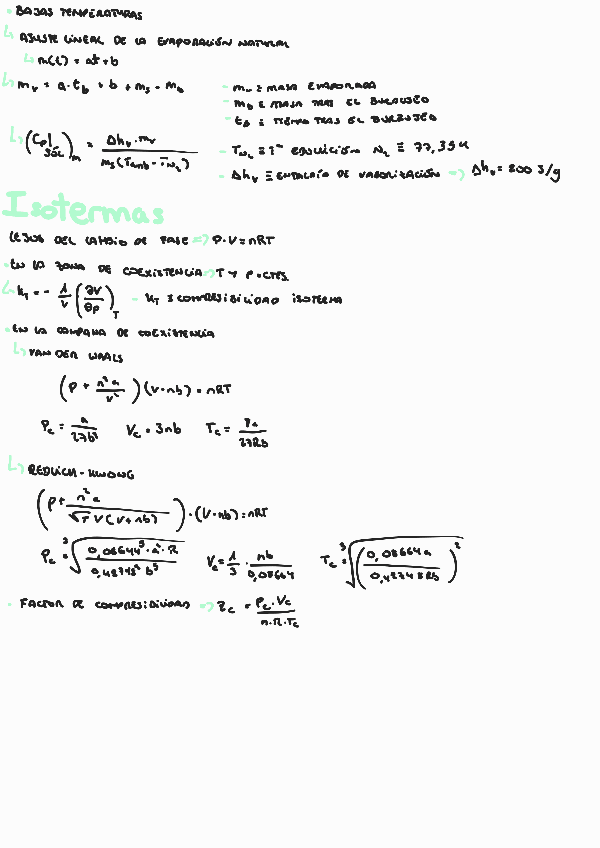 • BAJAS TEMPERATURAS
↳ AJUSTE LINEAL DE LA EVAPORACIÓN NATURAL
↳ m(t) = at + b
↳ m_v = a·t_b + b + m_s - m_b - m_v ≡ MASA EVAPORADA
- m_b ≡ MASA TRAS EL BURBUJEO
- t_b ≡ TIEMPO TRAS EL BURBUJEO
↳ (C_p|_SÓL)_m = Δh_v · m_v / m_s (T_amb - T_N₂) - T_N₂ ≡ Tª EBULLICIÓN N₂ ≡ 77,35 K
- Δh_v ≡ ENTALPÍA DE VAPORIZACIÓN => Δh_v = 200 J/g
Isotermas
LEJOS DEL CAMBIO DE FASE => P·V = nRT
• EN LA ZONA DE COEXISTENCIA => T Y P = CTES.
↳ k_T = - 1/V (∂V/∂p)_T - k_T ≡ COMPRESIBILIDAD ISOTERMA
• EN LA CAMPANA DE COEXISTENCIA
↳ VAN DER WAALS
(P + n²a/V²)(V - nb) = nRT
P_c = a/27b² V_c = 3nb T_c = 8a/27Rb
↳ REDLICH - KWONG
(P + n²a/√T V(V + nb)) · (V - nb) = nRT
P_c = ³√(0,08664⁵ · a² · R / 0,42748² b⁵) V_c = 1/3 · nb/0,08664 T_c = ³√(0,08664a / 0,42748Rb)²
• FACTOR DE COMPRESIBILIDAD => Z_c = P_c · V_c / n·R·T_c